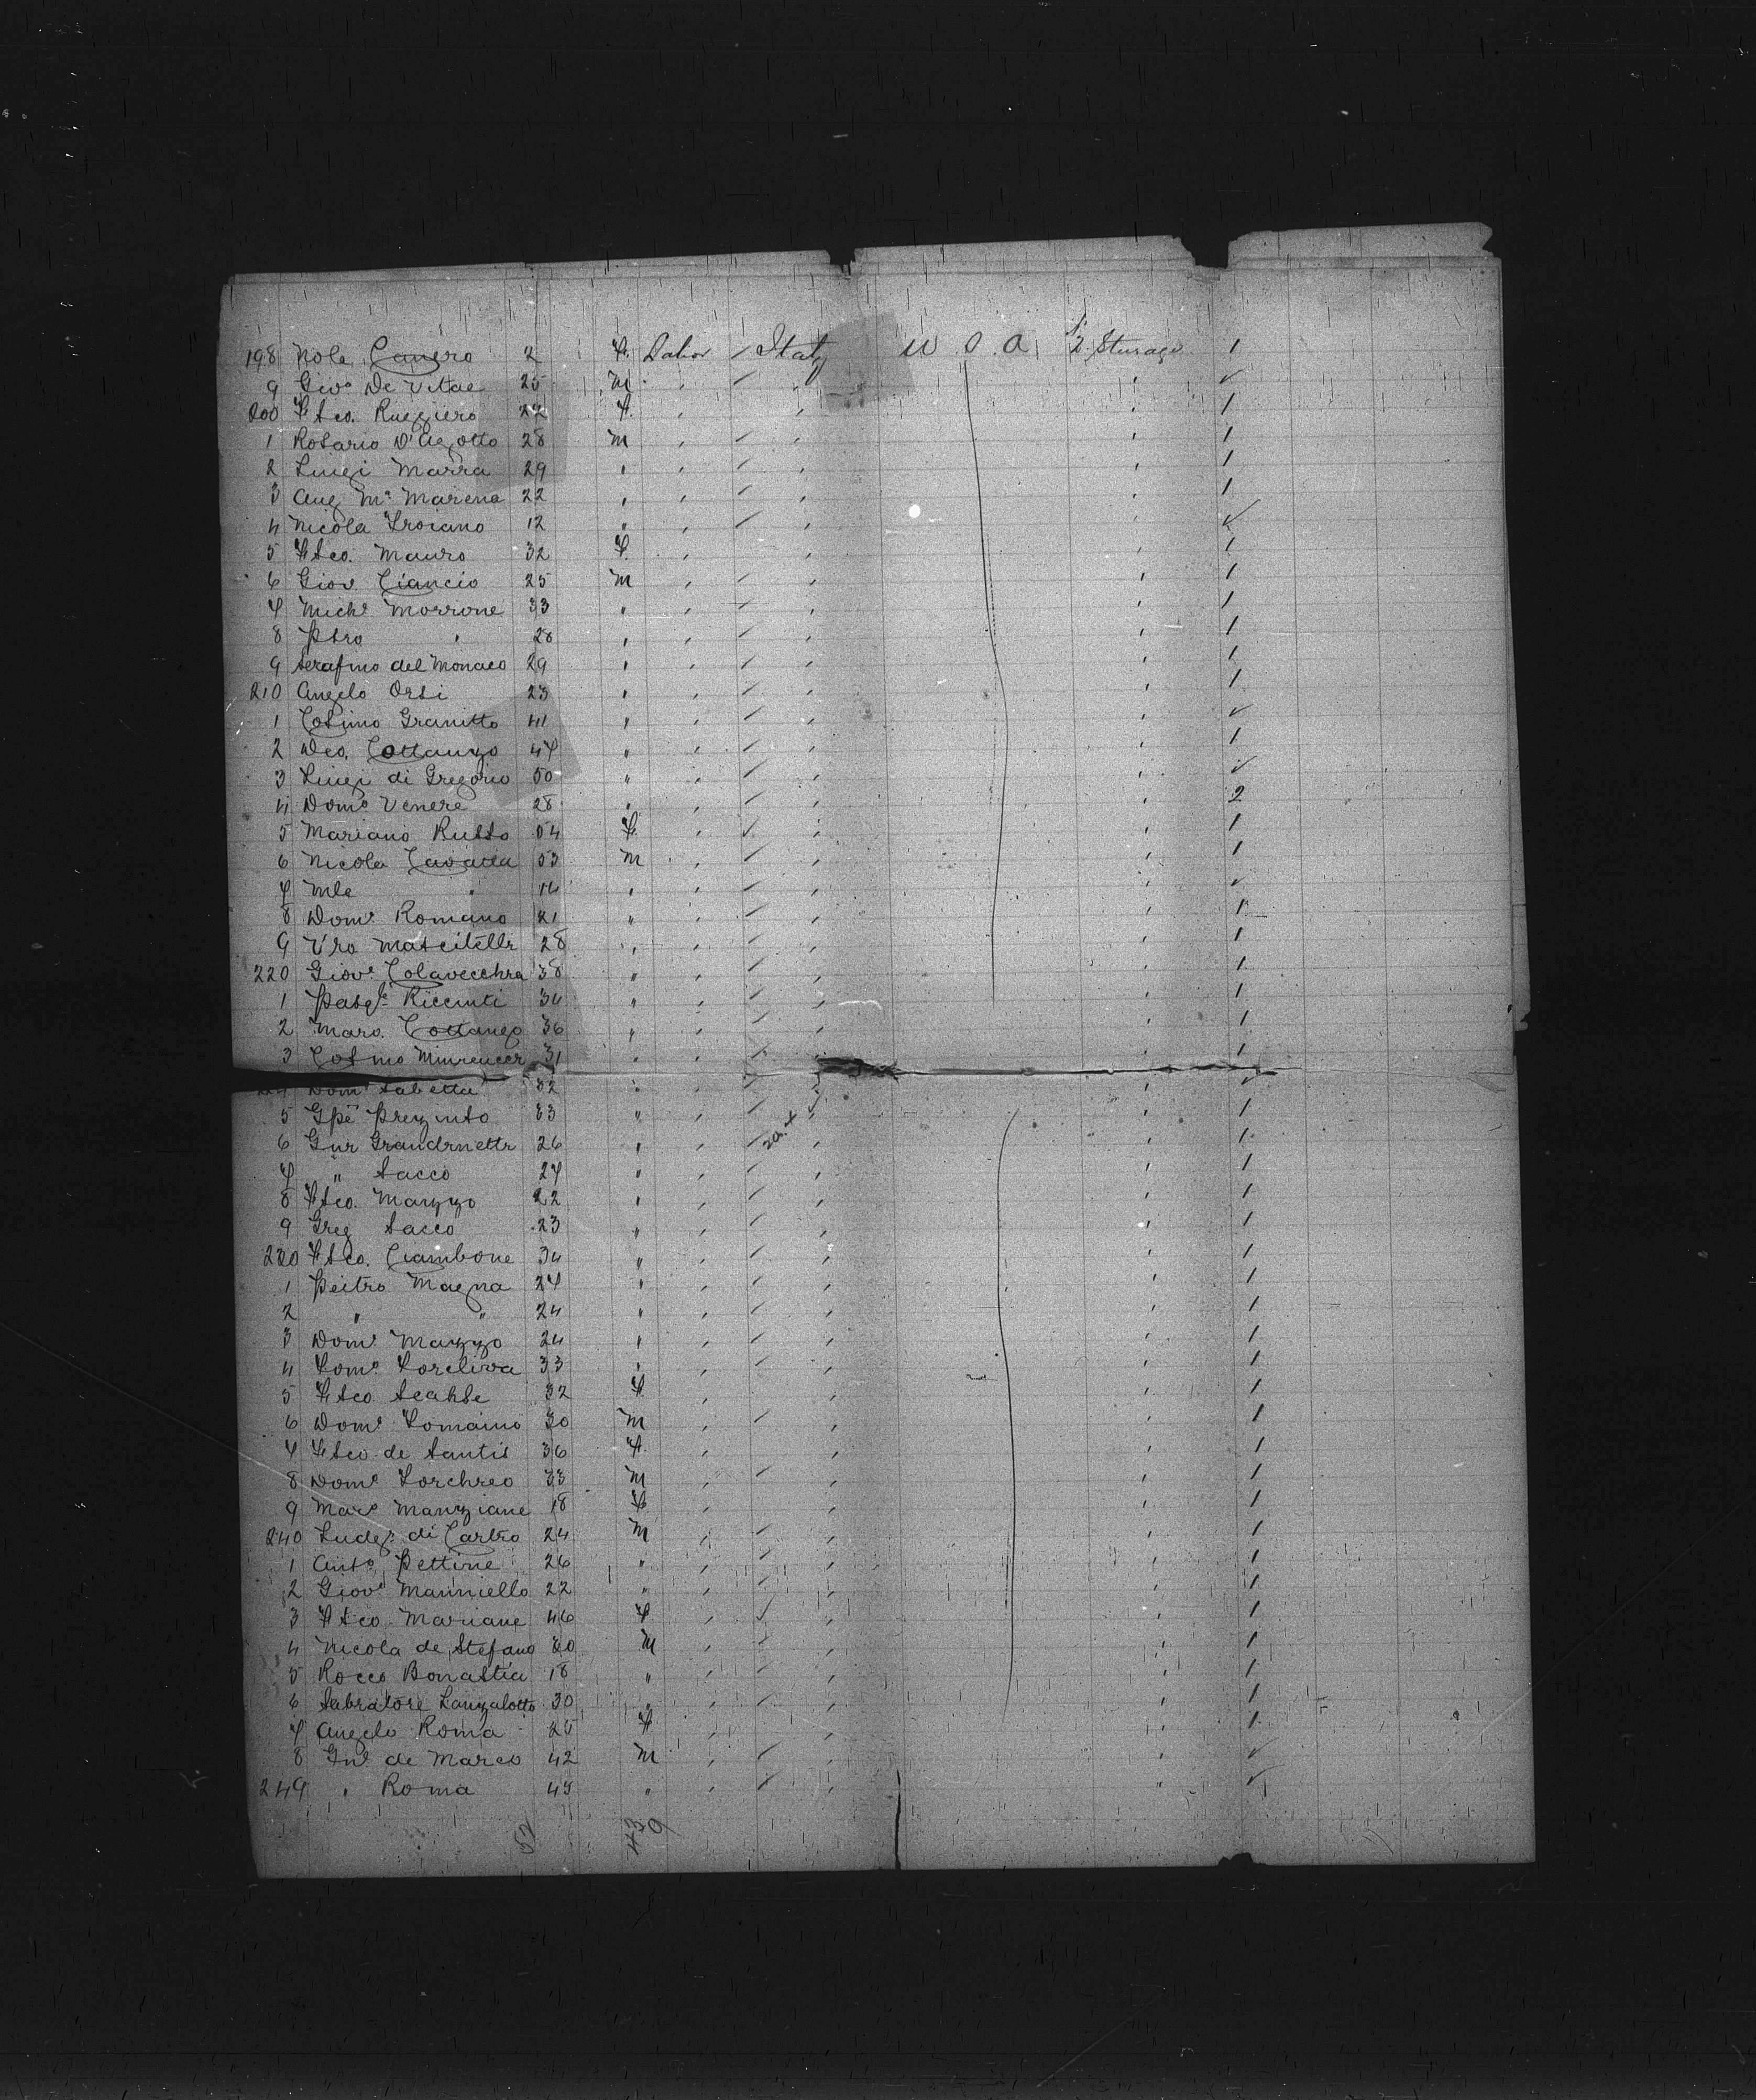 198 Nole Canero 2 F. Labor / Italy U S A 1/2 Sturage 1
9 Giov. De Vitae 25 M ✓
200 Fsco. Ruggiero 22 F. 1
1 Rosario D' 28 M 1
2 Luigi Marra 29 " 1
3 Aug Ma Marena 22 " 1
4 Nicola Troiano 12 " ✓
5 Fsco. Mauro 32 F. 1
6 Giov. Ciancio 25 M 1
7 Michl Morrone 33 " 1
8 Ptro " 28 " 1
9 Serafino del Monaco 29 " 1
210 Angelo Orsi 23 " 1
1 Cosimo Granitto 41 " ✓
2 Dco. Cottanzo 47 " 1
3 Luigi di Gregorio 50 " ✓
4 Domo Venere 28 " 2
5 Mariano Russo 54 F. 1
6 Nicola 53 M 1
7 Mle " 14 " ✓
8 Domo Romano 21 " 1
9 Vro Mascitelli 28 " 1
220 Giov. Colavecchia 38 " 1
1 Pasqle Riccinti 34 " 1
2 Maro. Cottanzo 36 " 1
3 Cosmo 31 " 1
Domo Sabetta 32 " ✓
5 Gpe Prezinto 33 " 1
6 Gur Grandinetti 26 " 1
7 " Sacco 27 " 1
8 Fsco. Mazzo 22 " 1
9 Greg Sacco 23 " 1
230 Fsco. Ciambone 34 " 1
1 Peitro Magna 27 " 1
2 " " 24 " 1
3 Domo Mazzo 24 " 1
4 Tomo 33 " 1
5 Fsco 32 F. 1
6 Domo Tomaino 30 M 1
7 Fsco de Santis 36 F. 1
8 Domo Torchreo 33 M 1
9 Maro Manziane 18 F 1
240 di Castro 24 M 1
1 Anto Pettine 26 " 1
2 Giovo Manniello 22 " 1
3 Fsco Mariane 46 F 1
4 Nicola de Stefano 30 M 1
5 Rocco 18 " 1
6 Salvatore Lanzalotto 30 " 1
7 Angelo Roma 25 F 1
8 Gne de Marco 42 M ✓
249 " Roma 45 " ✓
52 43
9